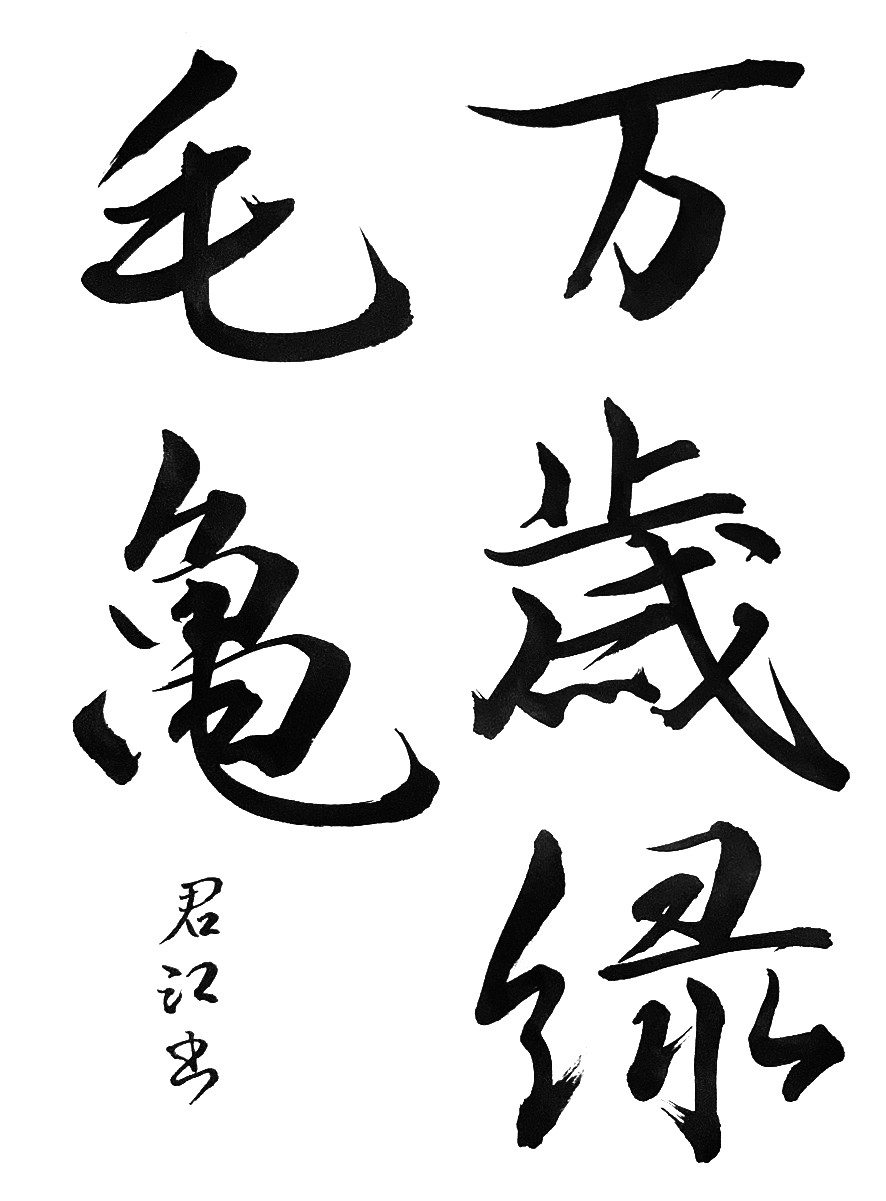 万歳緑
毛亀
君江书